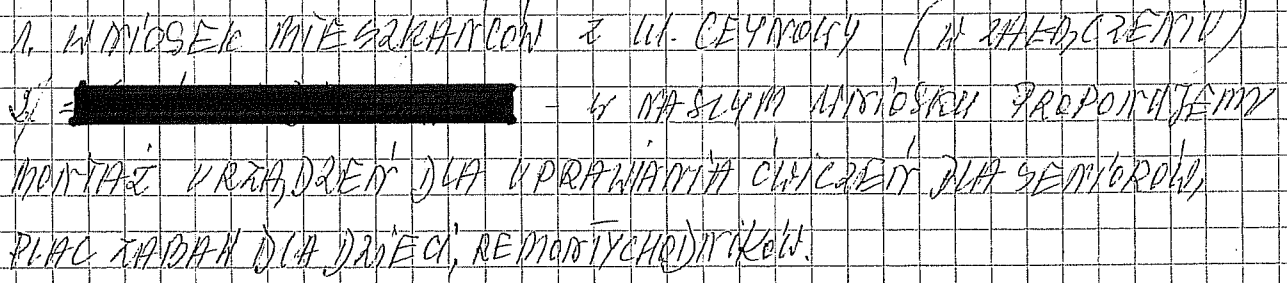 1. WNIOSEK MIESZKAŃCÓW Z UL. CEYNOWY (W ZAŁĄCZENIU)
- W NASZYM WNIOSKU PROPONUJEMY
MONTAŻ URZĄDZEŃ DLA UPRAWIANIA ĆWICZEŃ DLA SENIORÓW,
PLAC ZABAW DLA DZIECI, REMONTY CHODNIKÓW.